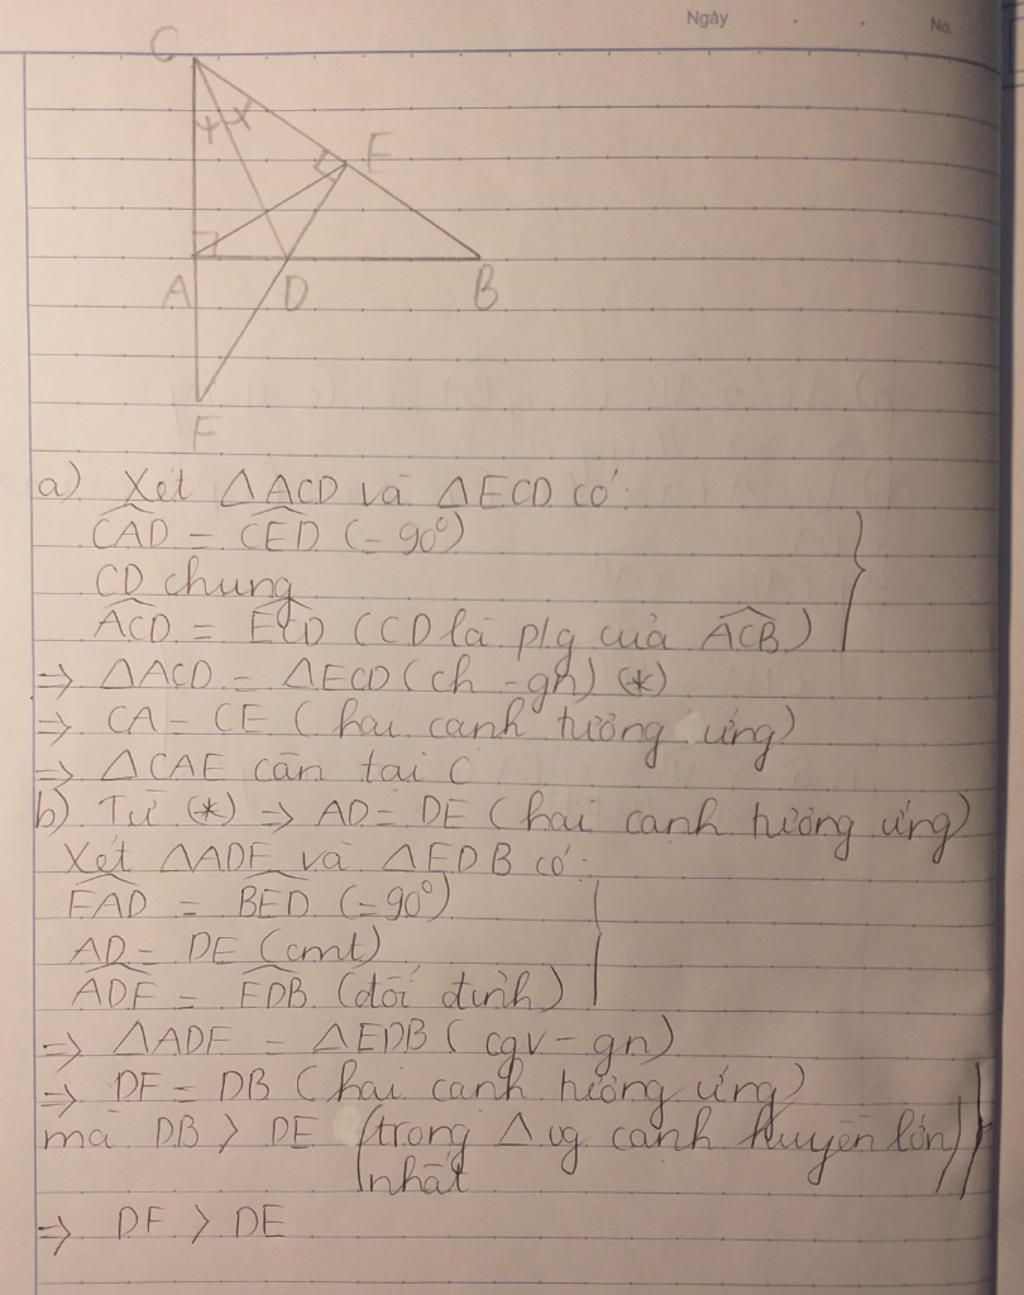 Ngày . .
No.
C
E
A D B
F
a) Xét △ACD và △ECD có:
\widehat{CAD} = \widehat{CED} (= 90°)
CD chung
\widehat{ACD} = \widehat{ECD} (CD là p/g của \widehat{ACB})
=> △ACD = △ECD (ch - gn) (*)
=> CA = CE (hai cạnh tương ứng)
=> △CAE cân tại C
b) Từ (*) => AD = DE (hai cạnh tương ứng)
Xét △ADF và △EDB có:
\widehat{FAD} = \widehat{BED} (= 90°)
AD = DE (cmt)
\widehat{ADF} = \widehat{EDB} (đối đỉnh)
=> △ADF = △EDB (cgv - gn)
=> DF = DB (hai cạnh tương ứng)
mà DB > DE (trong △ vg cạnh huyền lớn
nhất)
=> DF > DE